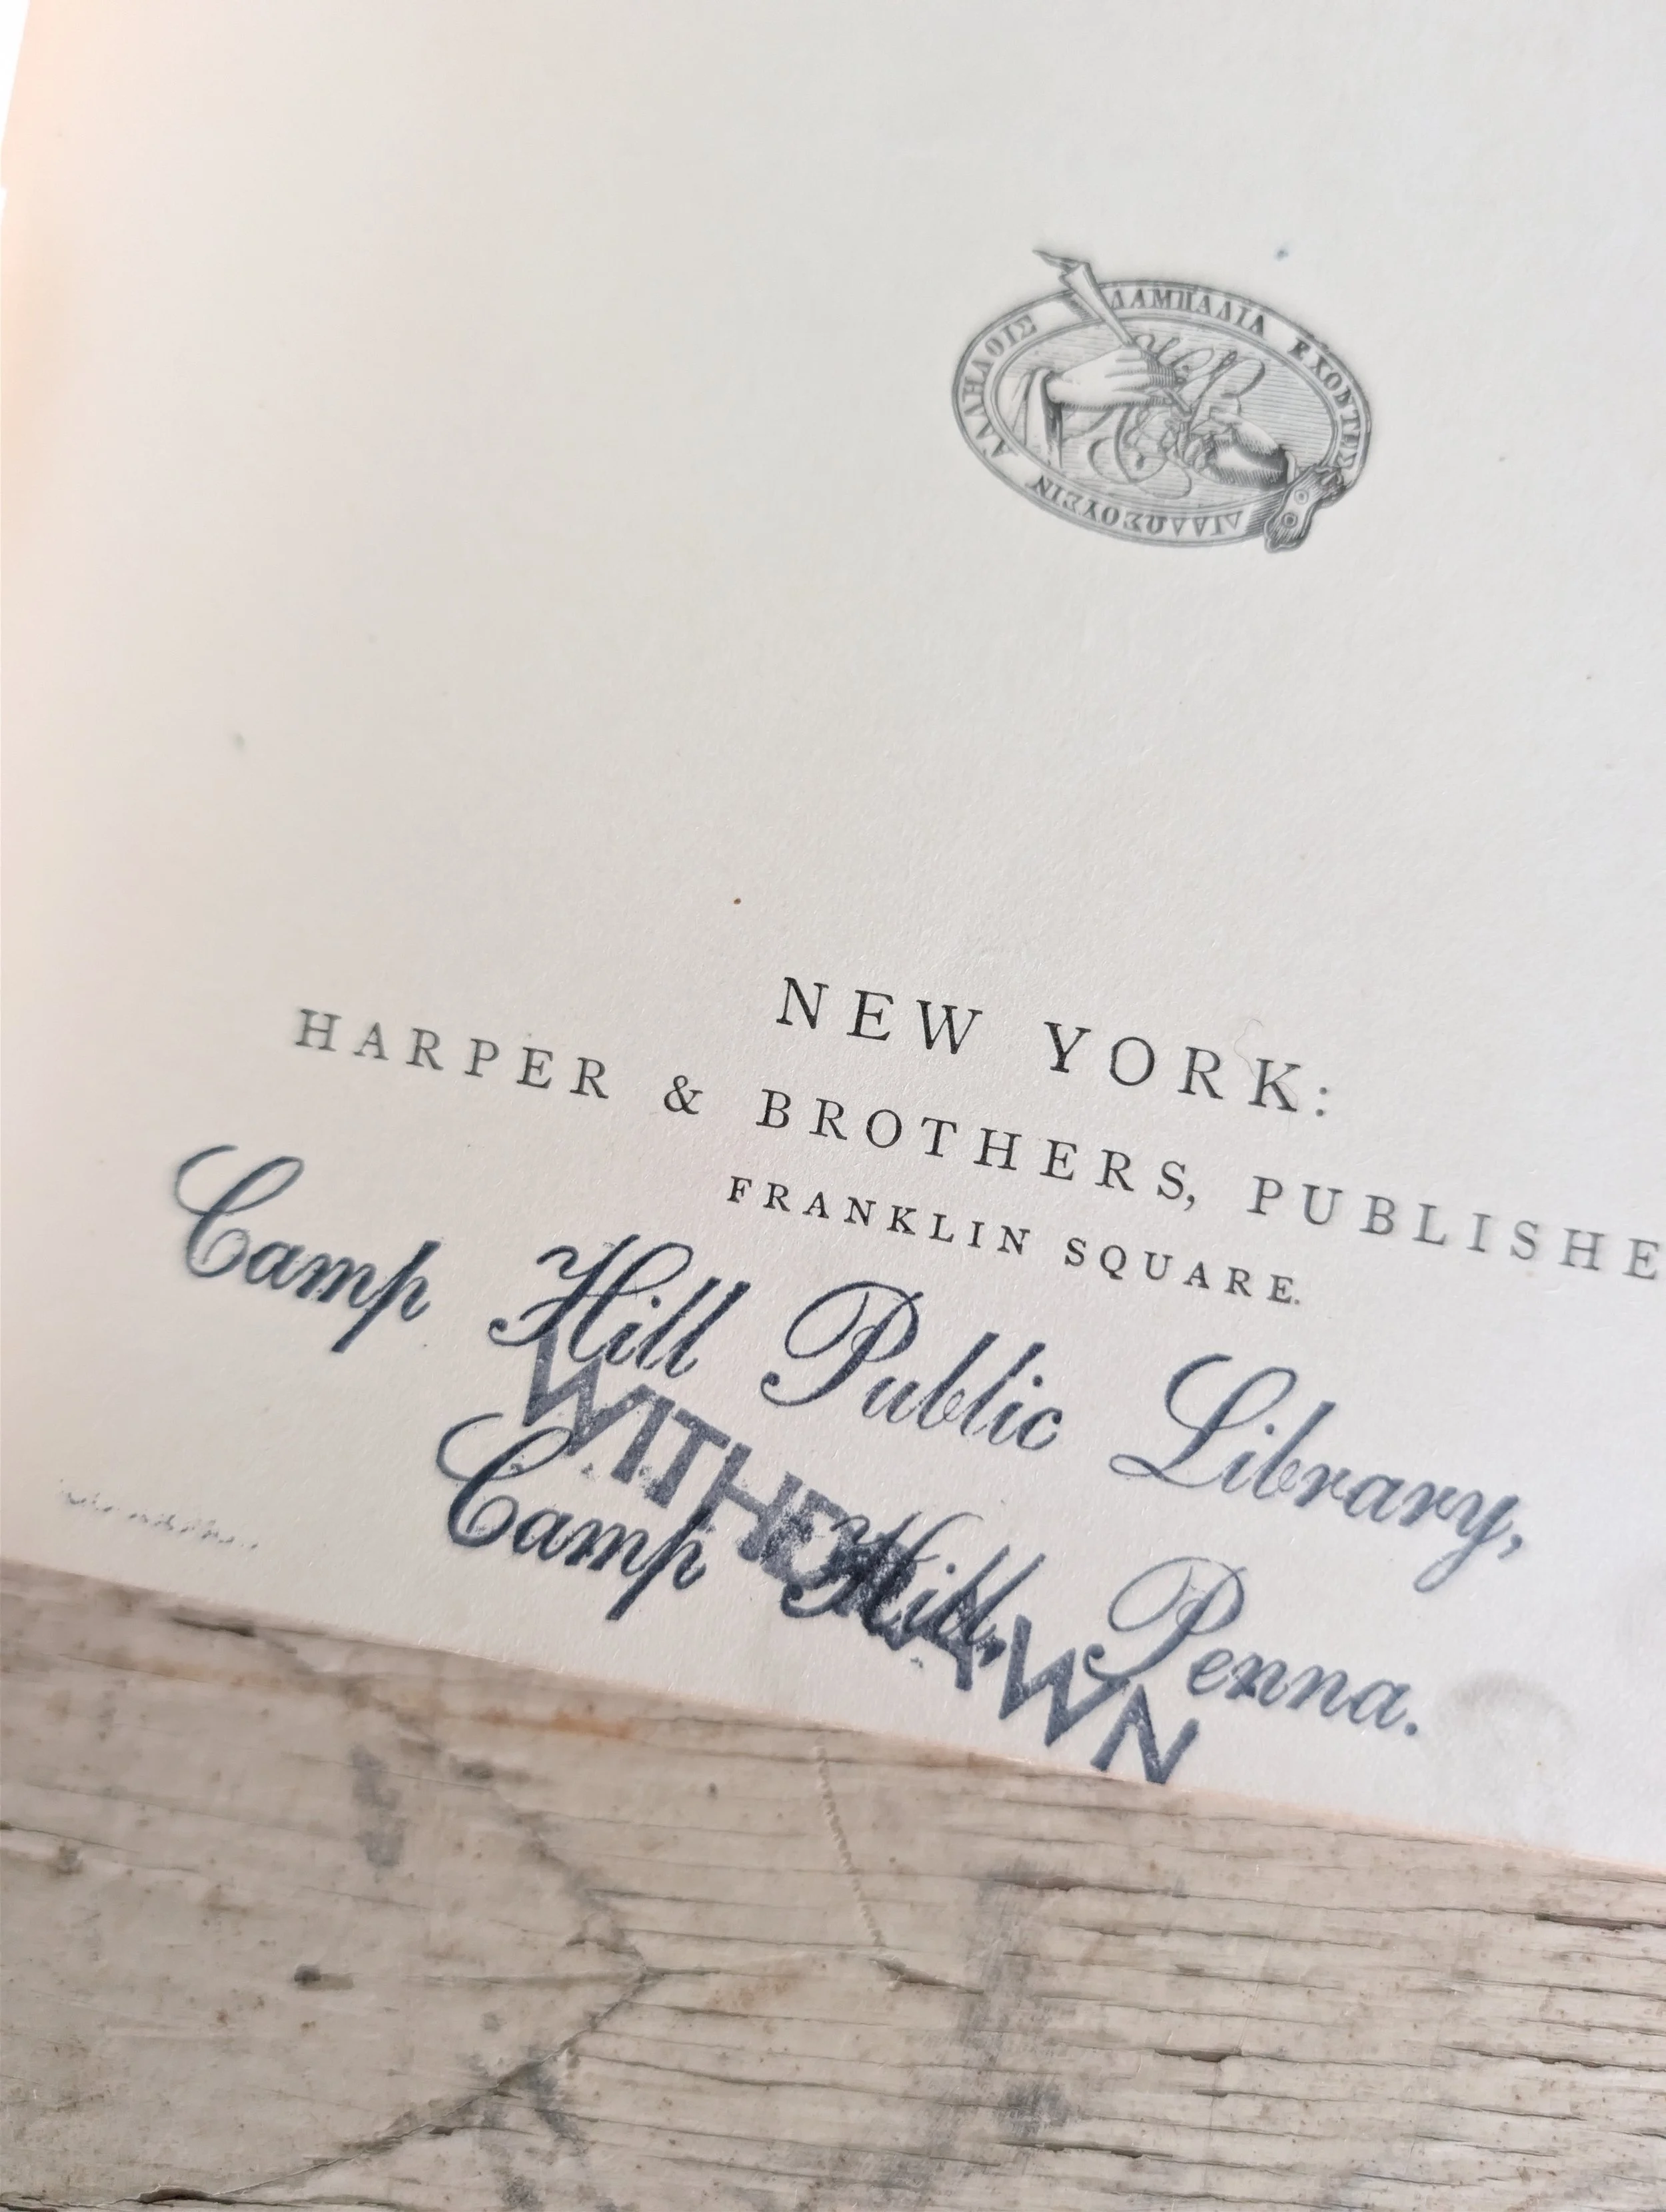 ΛΑΜΠΑΔΙΑ ΕΧΟΝΤΕΣ
ΔΙΑΔΩΣΟΥΣΙΝ ΑΛΛΗΛΟΙΣ
NEW YORK:
HARPER & BROTHERS, PUBLISHE
FRANKLIN SQUARE.
Camp Hill Public Library,
WITHDRAWN
Camp Hill, Penna.